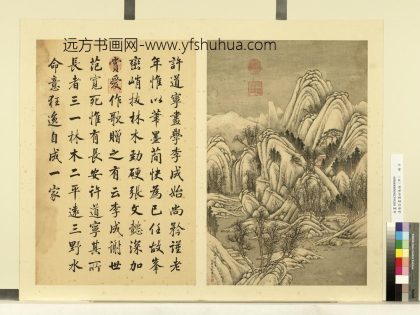 远方书画网-www.yfshuhua.com
許道寧畫學李成始尚矜謹老
年惟以筆墨簡快為已任故峯
巒峭拔林木勁硬張文懿深加
賞愛作歌贈之有云李成謝世
范寬死惟有長安許道寧其所
長者三一林木二平遠三野水
命意狂逸自成一家